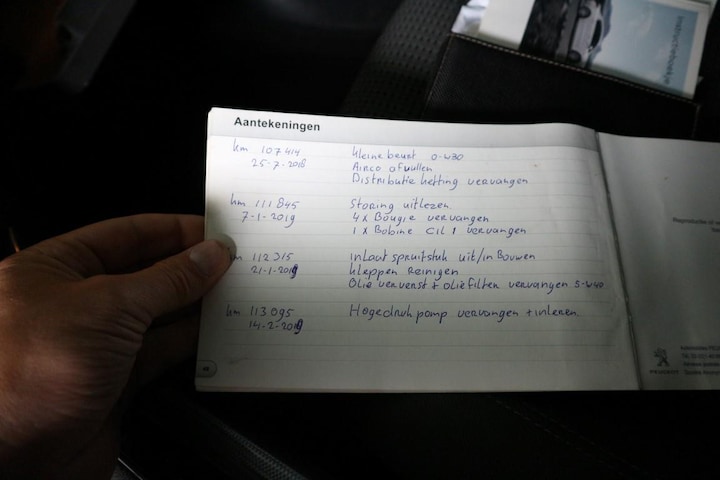 Instructieboekje
Aantekeningen
km 107414 Kleine beurt 0-W30
25-7-2018 Airco afvullen
Distributie ketting vervangen
km 111845 Storing uitlezen.
7-1-2019 4 x Bougie vervangen
1 x Bobine Cil 1 vervangen
km 112315 Inlaat spruitstuk uit/in Bouwen
21-1-2019 Kleppen Reinigen
Olie ververst + olie filter vervangen 5-W40
km 113095 Hogedruk pomp vervangen + inleren
14-2-2019
PEUGEOT